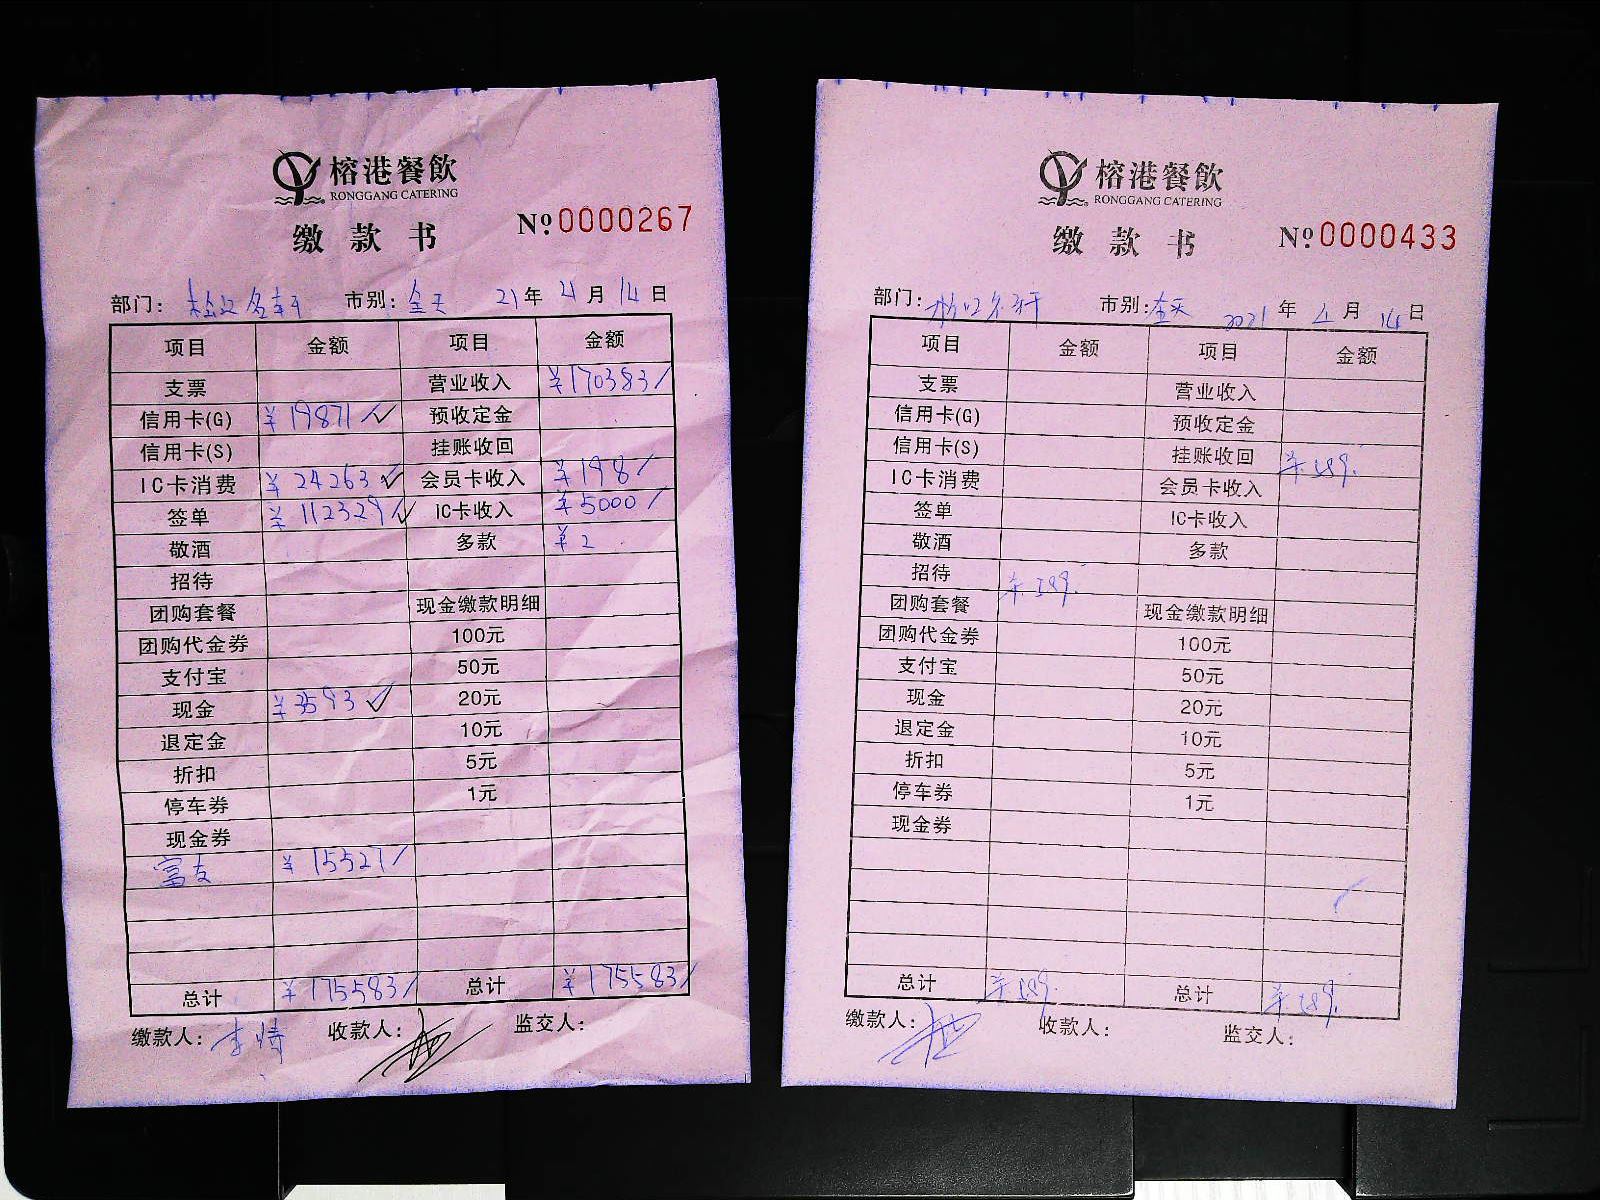 榕港餐飲
RONGGANG CATERING
缴款书 №0000267
部门: 市别: 全天 21年 4月 14日
项目 金额 项目 金额
支票 营业收入 ¥170383
信用卡(G) ¥19871 预收定金
信用卡(S) 挂账收回
IC卡消费 ¥24263 会员卡收入 ¥198
签单 ¥112329 IC卡收入 ¥5000
敬酒 多款 ¥2
招待
团购套餐 现金缴款明细
团购代金券 100元
支付宝 50元
现金 ¥3593 20元
退定金 10元
折扣 5元
停车券 1元
现金券
富友 ¥15527
总计 ¥175583 总计 ¥175583
缴款人: 收款人: 监交人:
榕港餐飲
RONGGANG CATERING
缴款书 №0000433
部门: 市别: 全天 2021年 4月 14日
项目 金额 项目 金额
支票 营业收入
信用卡(G) 预收定金
信用卡(S) 挂账收回
IC卡消费 会员卡收入
签单 IC卡收入
敬酒 多款
招待
团购套餐 现金缴款明细
团购代金券 100元
支付宝 50元
现金 20元
退定金 10元
折扣 5元
停车券 1元
现金券
总计 总计
缴款人: 收款人: 监交人: